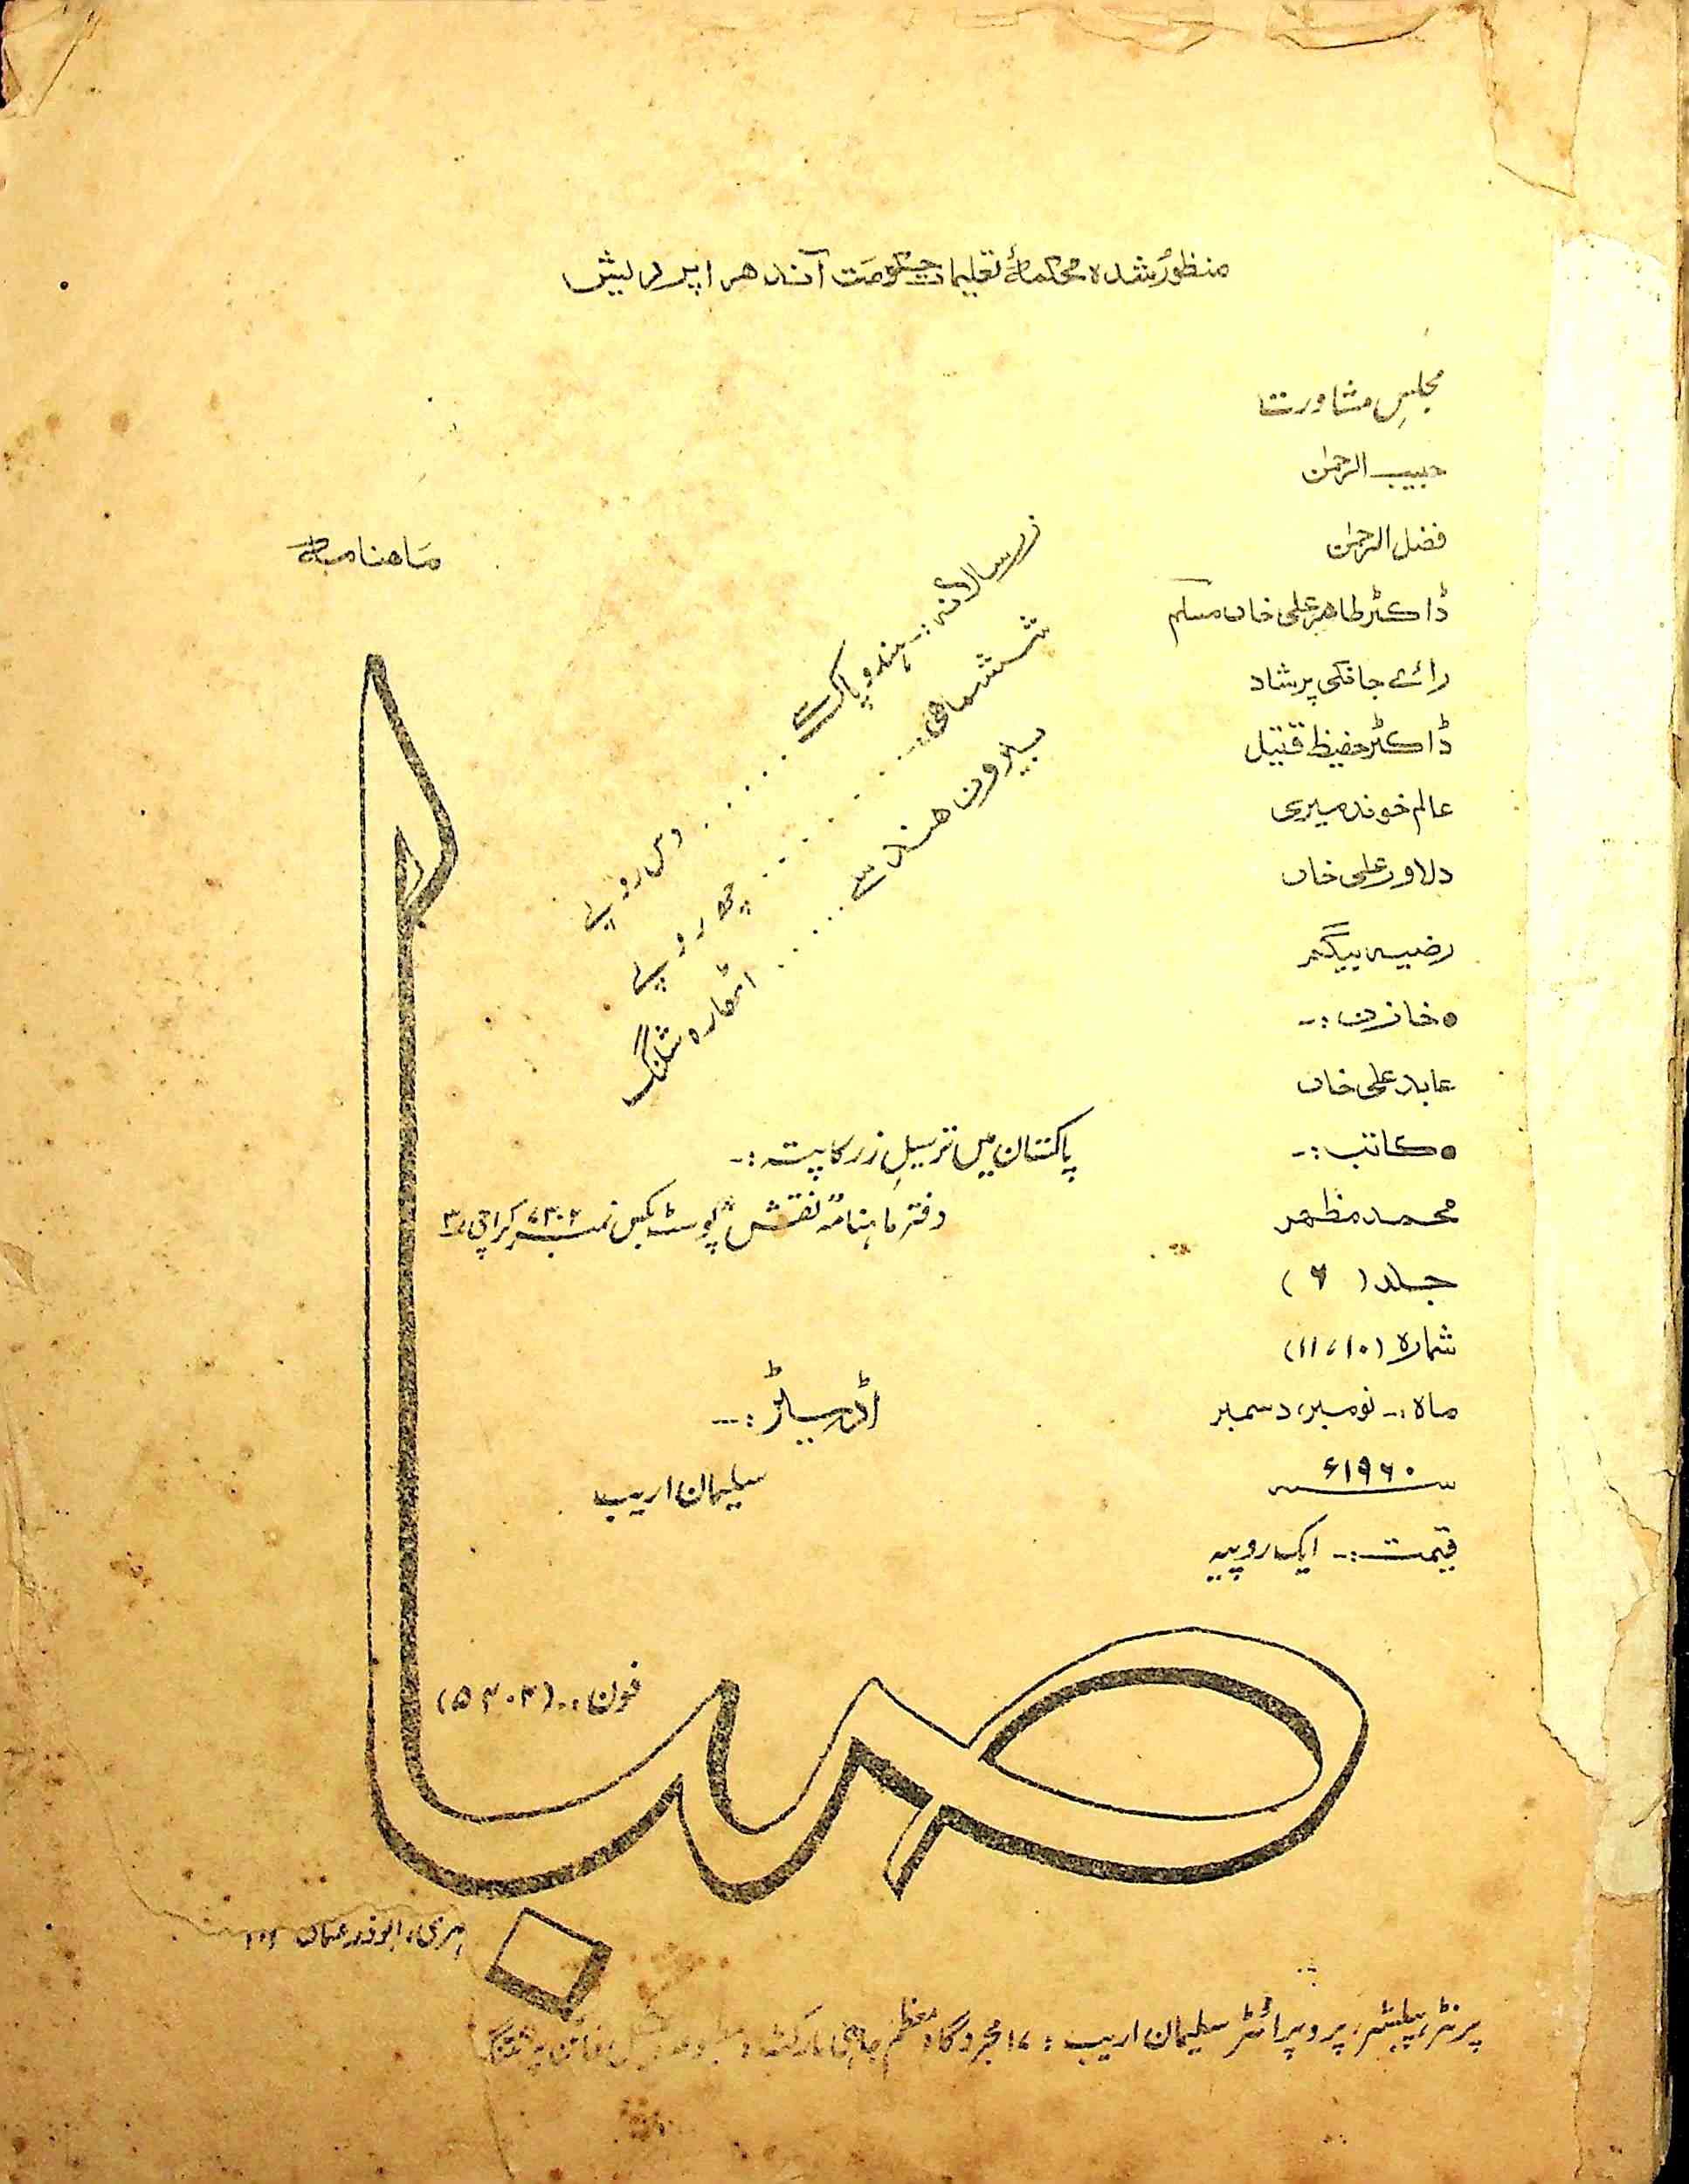 منظور شدہ محکمۂ تعلیمات حکومت آندھرا پردیش
مجلسِ مشاورت
حبیب الرحمٰن
فضل الرحمٰن
ڈاکٹر طاہر علی خاں مسلم
رائے جانکی پرشاد
ڈاکٹر حفیظ قتیل
عالم خوندمیری
دلاور علی خاں
رضیہ بیگم
● خازن :-
عابد علی خاں
● کاتب :-
محمد مظہر
جلد ( ۶ )
شمارہ (۱۰، ۱۱)
ماہ :- نومبر، دسمبر
سنہ ۱۹۶۰ء
قیمت :- ایک روپیہ
ماہنامہ
زر سالانہ :- ہند و پاک سے ..... دس روپے
ششماہی :- ..... چھ روپے
بیرون ھند سے ..... اٹھارہ شلنگ
پاکستان میں ترسیلِ زر کا پتہ :-
دفتر ماہنامہ نقش پوسٹ بکس نمبر کراچی ۳
اڈیٹر :--
سلیمان اریب
فون :-
صبا
ابوذر عثمان
پرنٹر، پبلشر، پروپرائٹر سلیمان اریب : ۱۷ مجردگاہ معظم جاہی مارکٹ، فائن پرنٹنگ